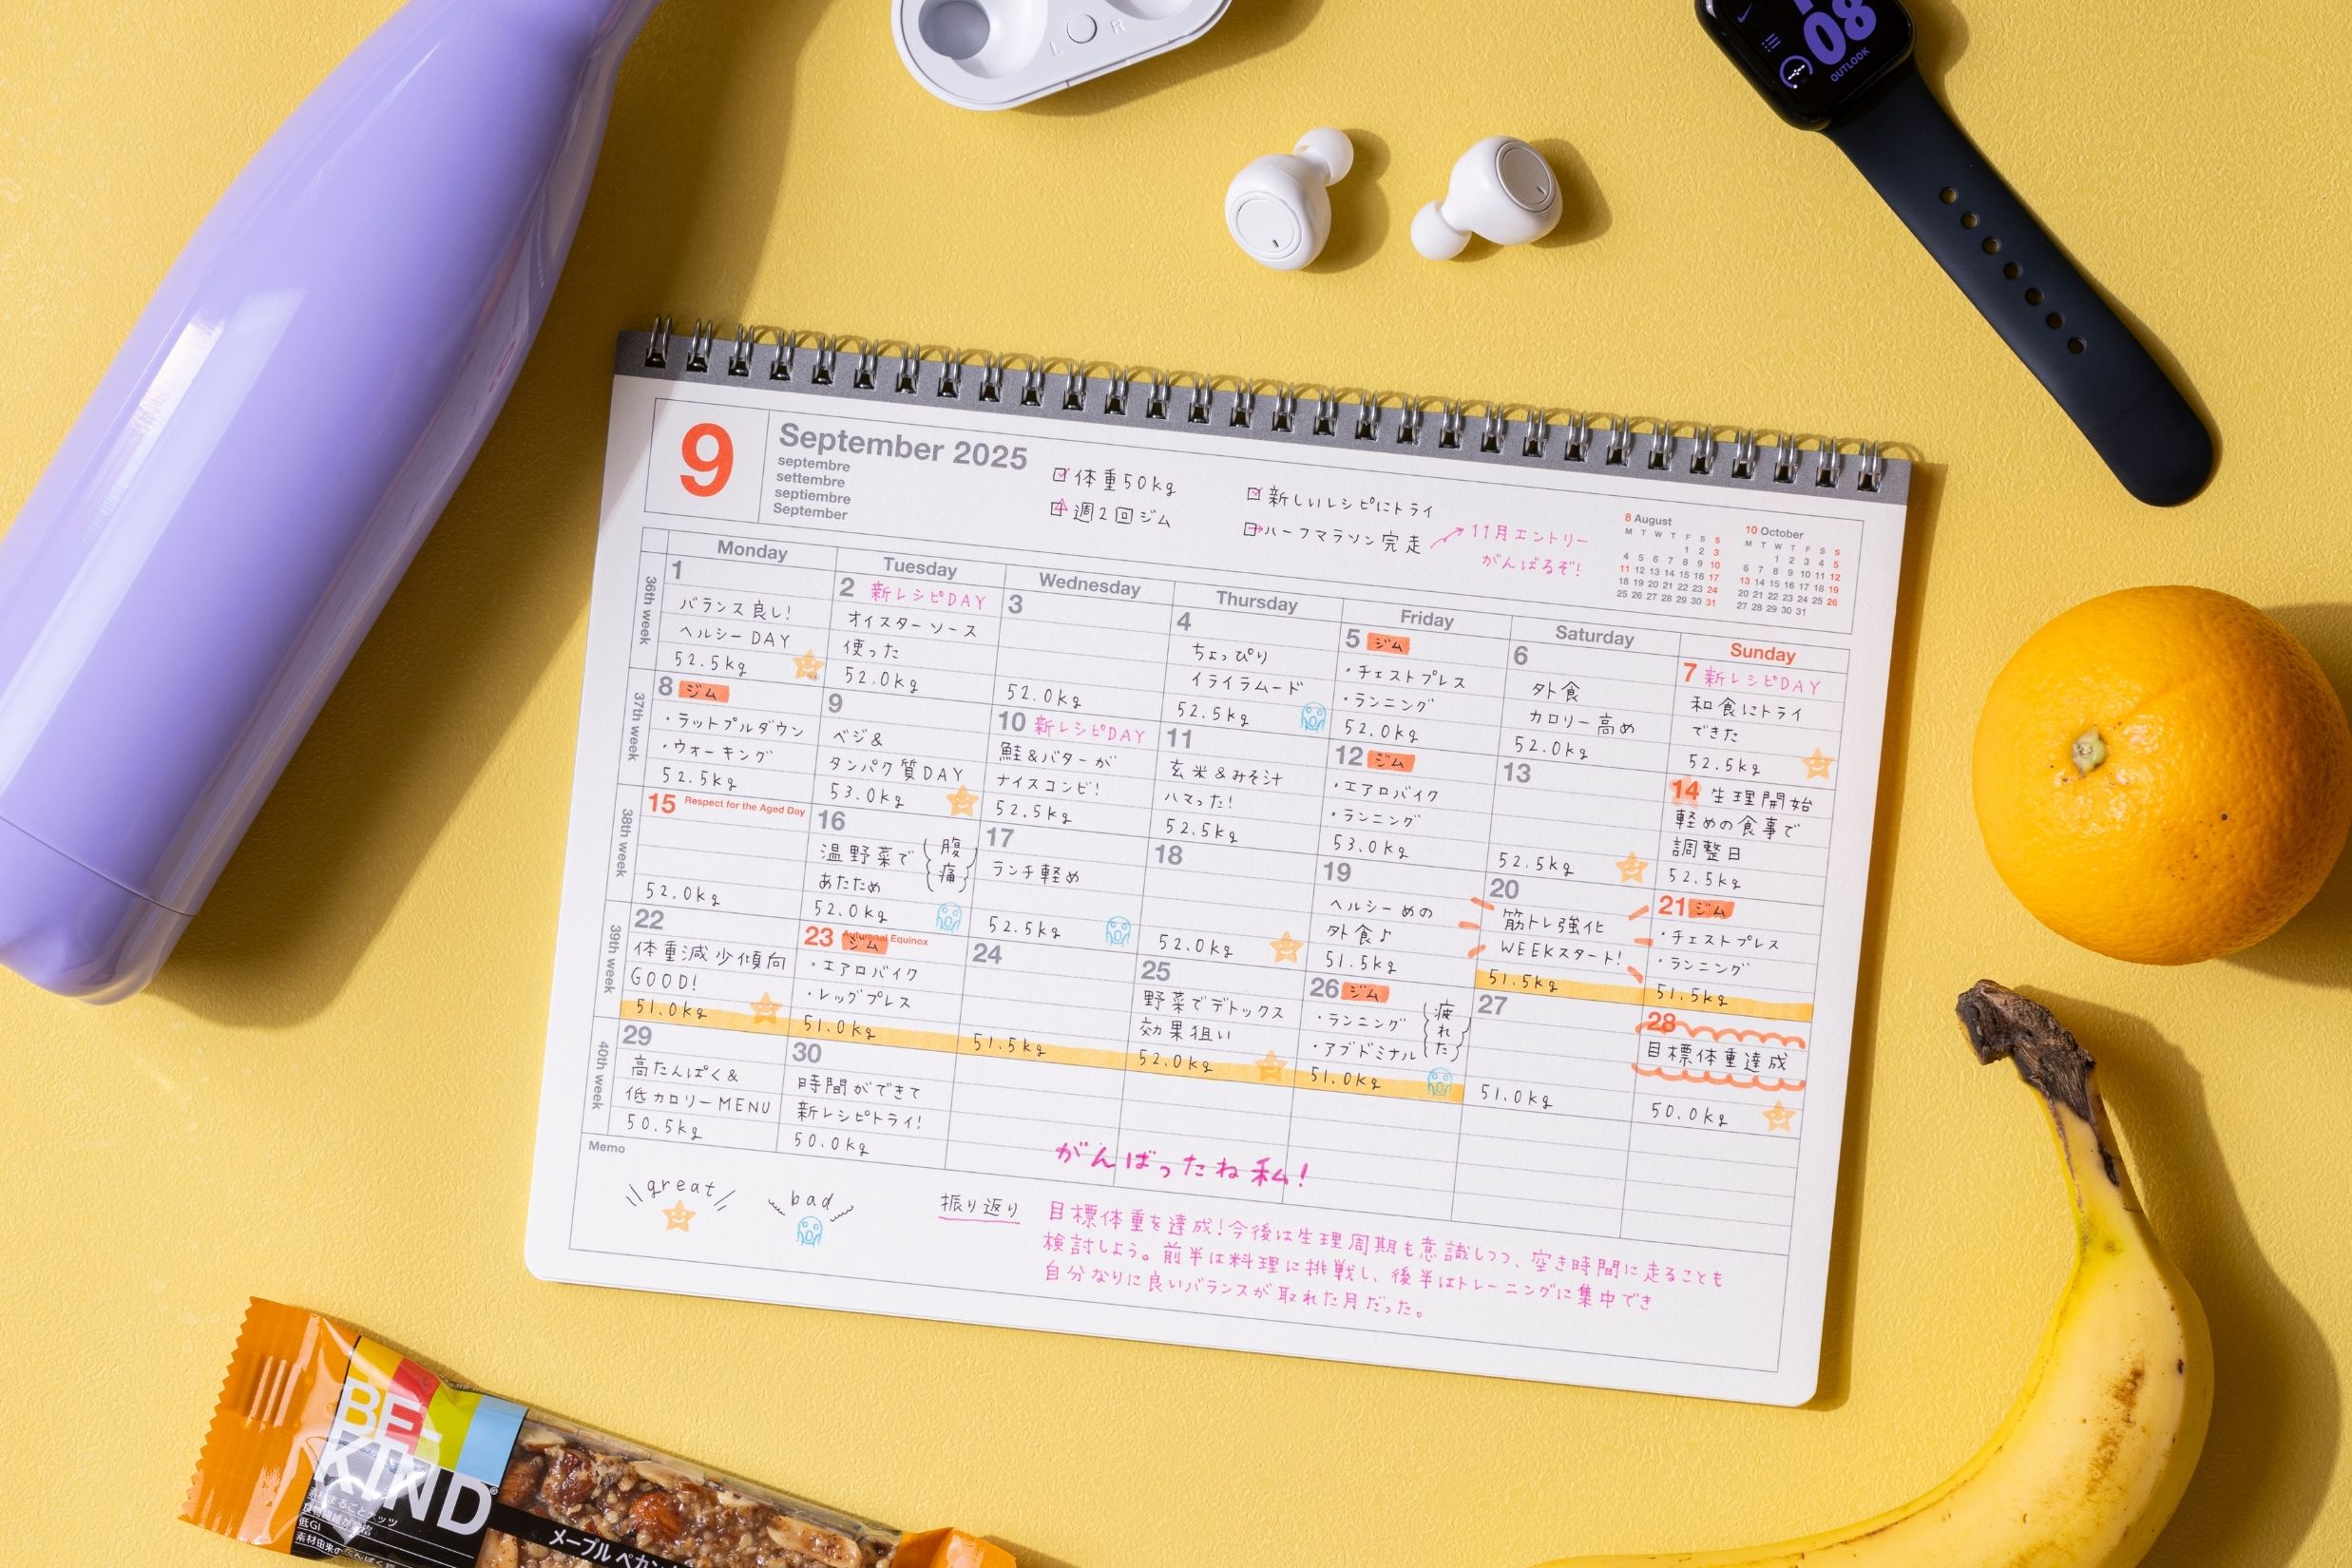 L R
08
OUTLOOK
9
September 2025
septembre
settembre
septiembre
September
体重50kg
週2回ジム
新しいレシピにトライ
ハーフマラソン完走
11月エントリー
がんばるぞ!
8 August
M T W T F S S
1 2 3
4 5 6 7 8 9 10
11 12 13 14 15 16 17
18 19 20 21 22 23 24
25 26 27 28 29 30 31
10 October
M T W T F S S
1 2 3 4 5
6 7 8 9 10 11 12
13 14 15 16 17 18 19
20 21 22 23 24 25 26
27 28 29 30 31
Monday Tuesday Wednesday Thursday Friday Saturday Sunday
36th week
1
バランス良し!
ヘルシーDAY
52.5kg
2 新レシピDAY
オイスターソース
使った
52.0kg
3
52.0kg
4
ちょっぴり
イライラムード
52.5kg
5 ジム
・チェストプレス
・ランニング
52.0kg
6
外食
カロリー高め
52.0kg
7 新レシピDAY
和食にトライ
できた
52.5kg
37th week
8 ジム
・ラットプルダウン
・ウォーキング
52.5kg
9
ベジ&
タンパク質DAY
53.0kg
10 新レシピDAY
鮭&バターが
ナイスコンビ!
52.5kg
11
玄米&みそ汁
ハマった!
52.5kg
12 ジム
・エアロバイク
・ランニング
53.0kg
13
52.5kg
14 生理開始
軽めの食事で
調整日
52.5kg
38th week
15 Respect for the Aged Day
52.0kg
16
温野菜で
あたため
腹痛
52.0kg
17
ランチ軽め
52.5kg
18
52.0kg
19
ヘルシーめの
外食♪
51.5kg
20
筋トレ強化
WEEKスタート!
51.5kg
21 ジム
・チェストプレス
・ランニング
51.5kg
39th week
22
体重減少傾向
GOOD!
51.0kg
23 Autumnal Equinox
ジム
・エアロバイク
・レッグプレス
51.0kg
24
51.5kg
25
野菜でデトックス
効果狙い
52.0kg
26 ジム
・ランニング
・アブドミナル
疲れた
51.0kg
27
51.0kg
28
目標体重達成
50.0kg
40th week
29
高たんぱく&
低カロリーMENU
50.5kg
30
時間ができて
新レシピトライ!
50.0kg
がんばったね私!
Memo
great
bad
振り返り
目標体重を達成!今後は生理周期も意識しつつ、空き時間に走ることも
検討しよう。前半は料理に挑戦し、後半はトレーニングに集中でき
自分なりに良いバランスが取れた月だった。
BE-KIND®
低GI
メープル ペカン